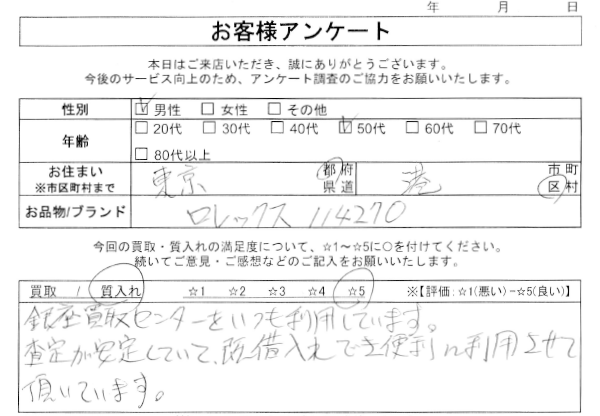 年 月 日
お客様アンケート
本日はご来店いただき、誠にありがとうございます。
今後のサービス向上のため、アンケート調査のご協力をお願いいたします。
性別 男性 女性 その他
年齢 20代 30代 40代 50代 60代 70代
80代以上
お住まい ※市区町村まで 東京 都府県道 港 市町区村
お品物/ブランド ロレックス 114270
今回の買取・質入れの満足度について、☆1～☆5に○を付けてください。
続いてご意見・ご感想などのご記入をお願いいたします。
買取 / 質入れ ☆1 ☆2 ☆3 ☆4 ☆5 ※【評価:☆1(悪い)−☆5(良い)】
銀座買取センターをいつも利用しています。
査定が安定していて、借入れでき便利に利用させて
頂いています。